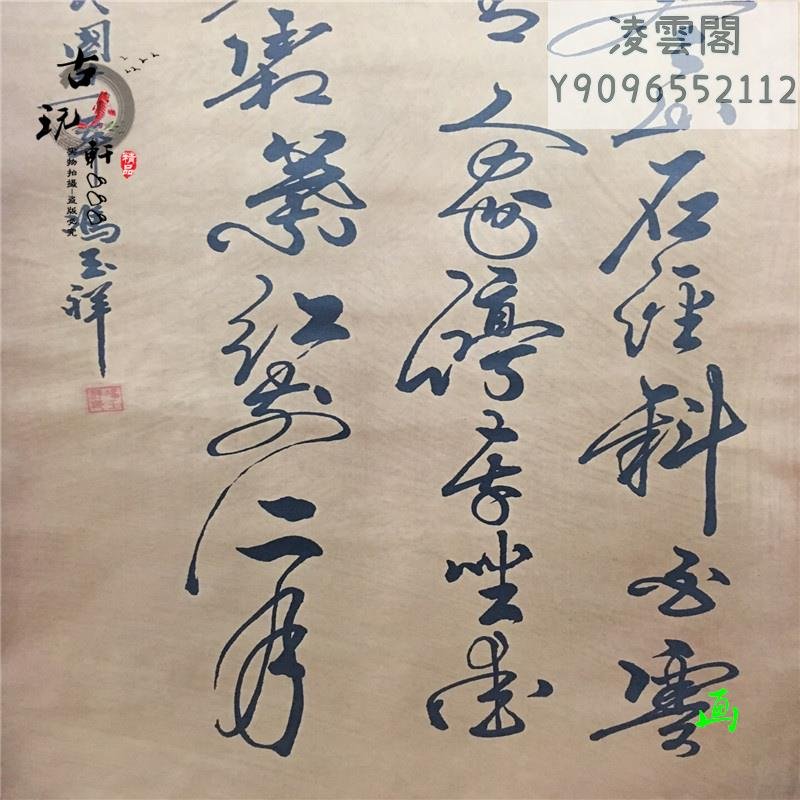 凌雲閣
Y9096552112
石徑斜白雲
人家停車坐愛
霜葉紅於二月
國
馮玉祥
古玩
軒888
精品
实物拍摄-盗版必究
画